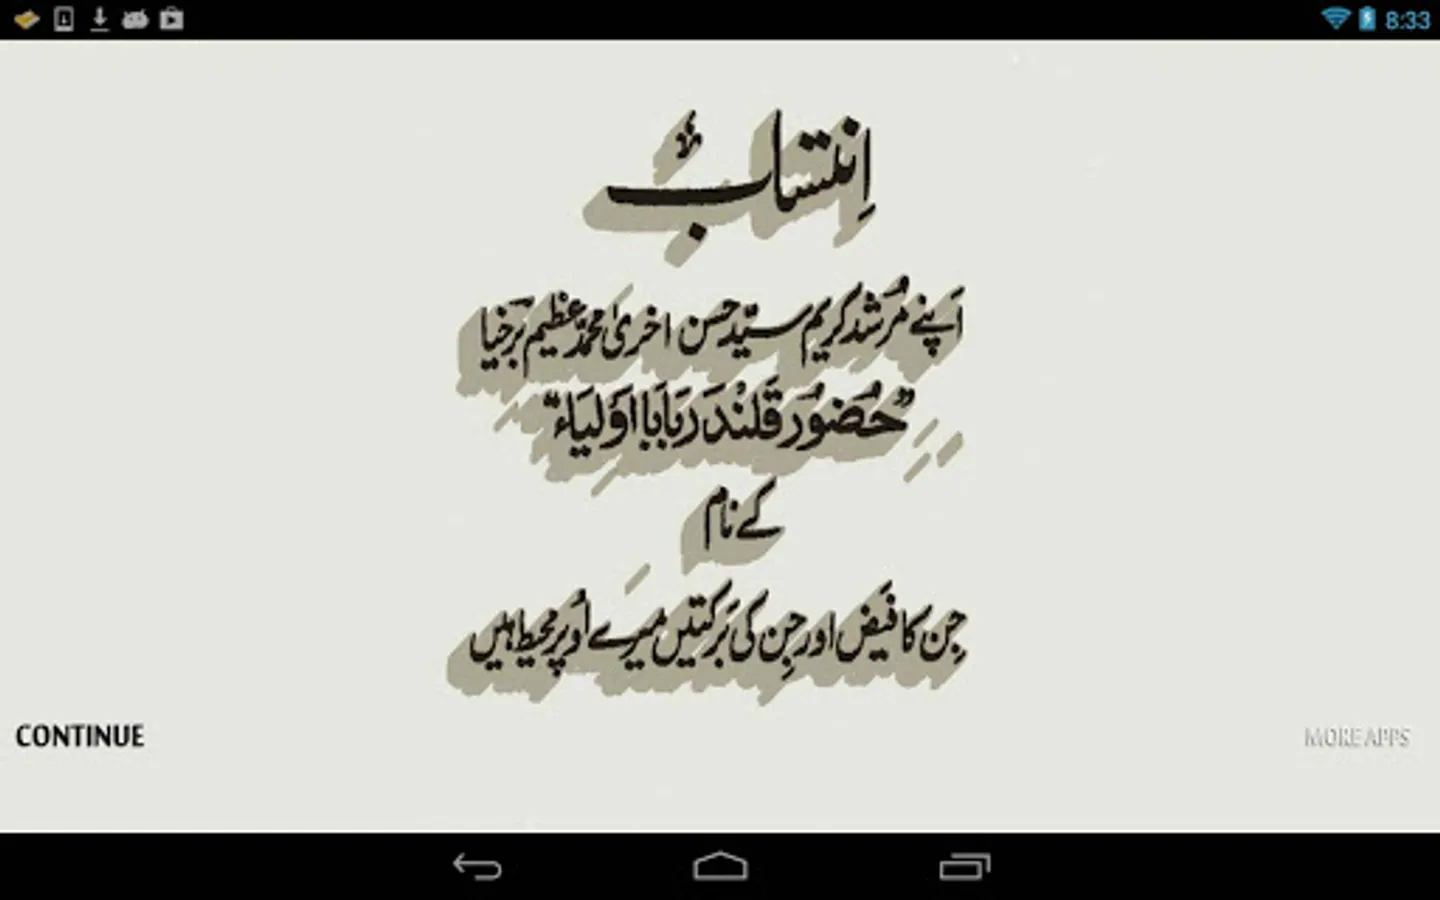 8:33
اِنتساب
اَپنے مُرشد کریم سیّد حسن اخریٰ محمّد عظیم برخیا
”حُضُور قَلندَر بَابَا اَولیَاء“
کے نام
جِن کا فیَض اور جِن کی بَرکتیں میرے اُوپر محیط ہیں
CONTINUE
MORE APPS